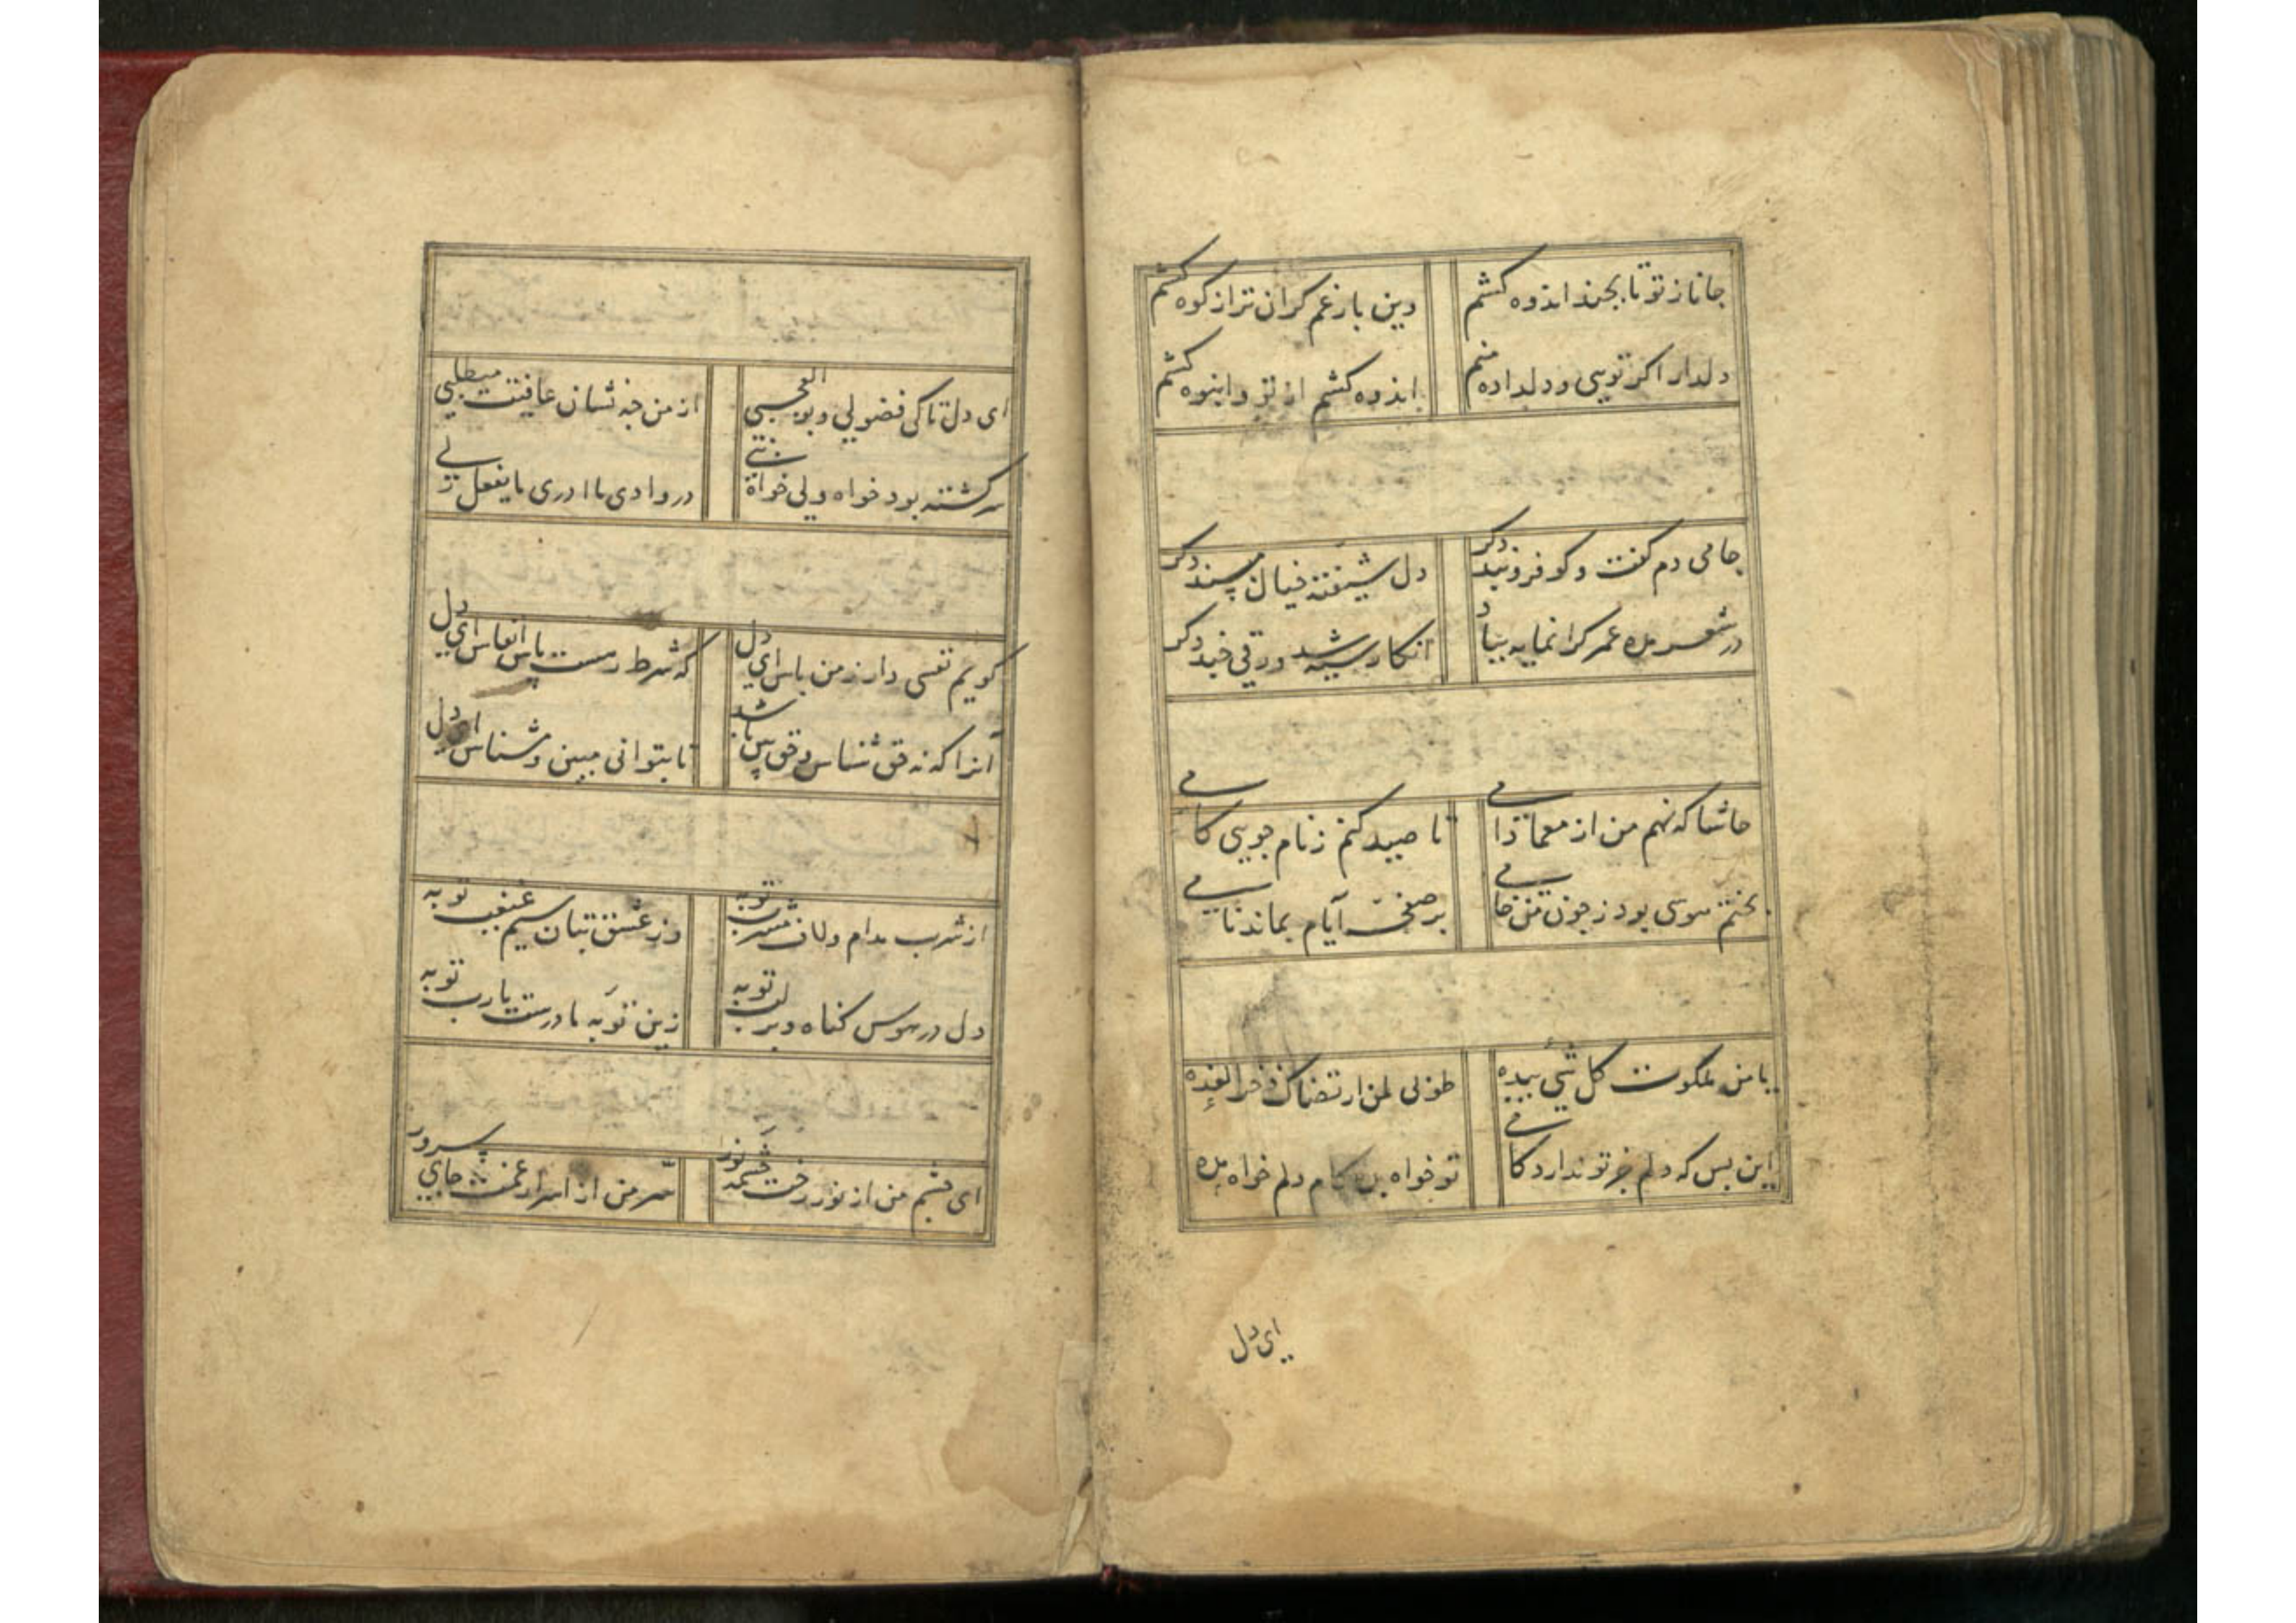 جانا ز تو تا بچند اندوه کشم وین بار غم گران تر از کوه کشم
دلدار اگر تویی و دلداده منم اندوه کشم از تو و انبوه کشم
جامی دم گفت و گو فرو بند دگر دل شیفته خیال مپسند دگر
در شعر مده عمر گرانمایه بباد انگار سیه شد ورقی چند دگر
حاشا که نهم من از معما دامی تا صید کنم ز نام جویی کامی
بختم سوی بود ز چون من خامی بر صفحه ایام بماند نامی
یا من ملکوت کل شیئ بیده طوبی لمن ارتضاک ذخرا لغده
این بس که دلم جز تو ندارد کامی تو خواه بده کام دلم خواه مده
ای دل
ای دل تا کی فضولی و بوالعجبی از من چه نشان عافیت میطلبی
سرگشته بود خواه ولی خواه نبی در وادی ما ادری ما یفعل بی
گویم نفسی دار ز من پاس ای دل که شرط رهست پاس انفاس ای دل
آنرا که نه حق شناس و حق بین باشد تا بتوانی مبین و مشناس ای دل
از شرب مدام و لاف مشرب توبه وز عشق بتان سیم غبغب توبه
دل در هوس گناه و بر لب توبه زین توبه نادرست یارب توبه
ای چشم من از نور رخت چشمه نور سر من از اسرار غمت جای سرور